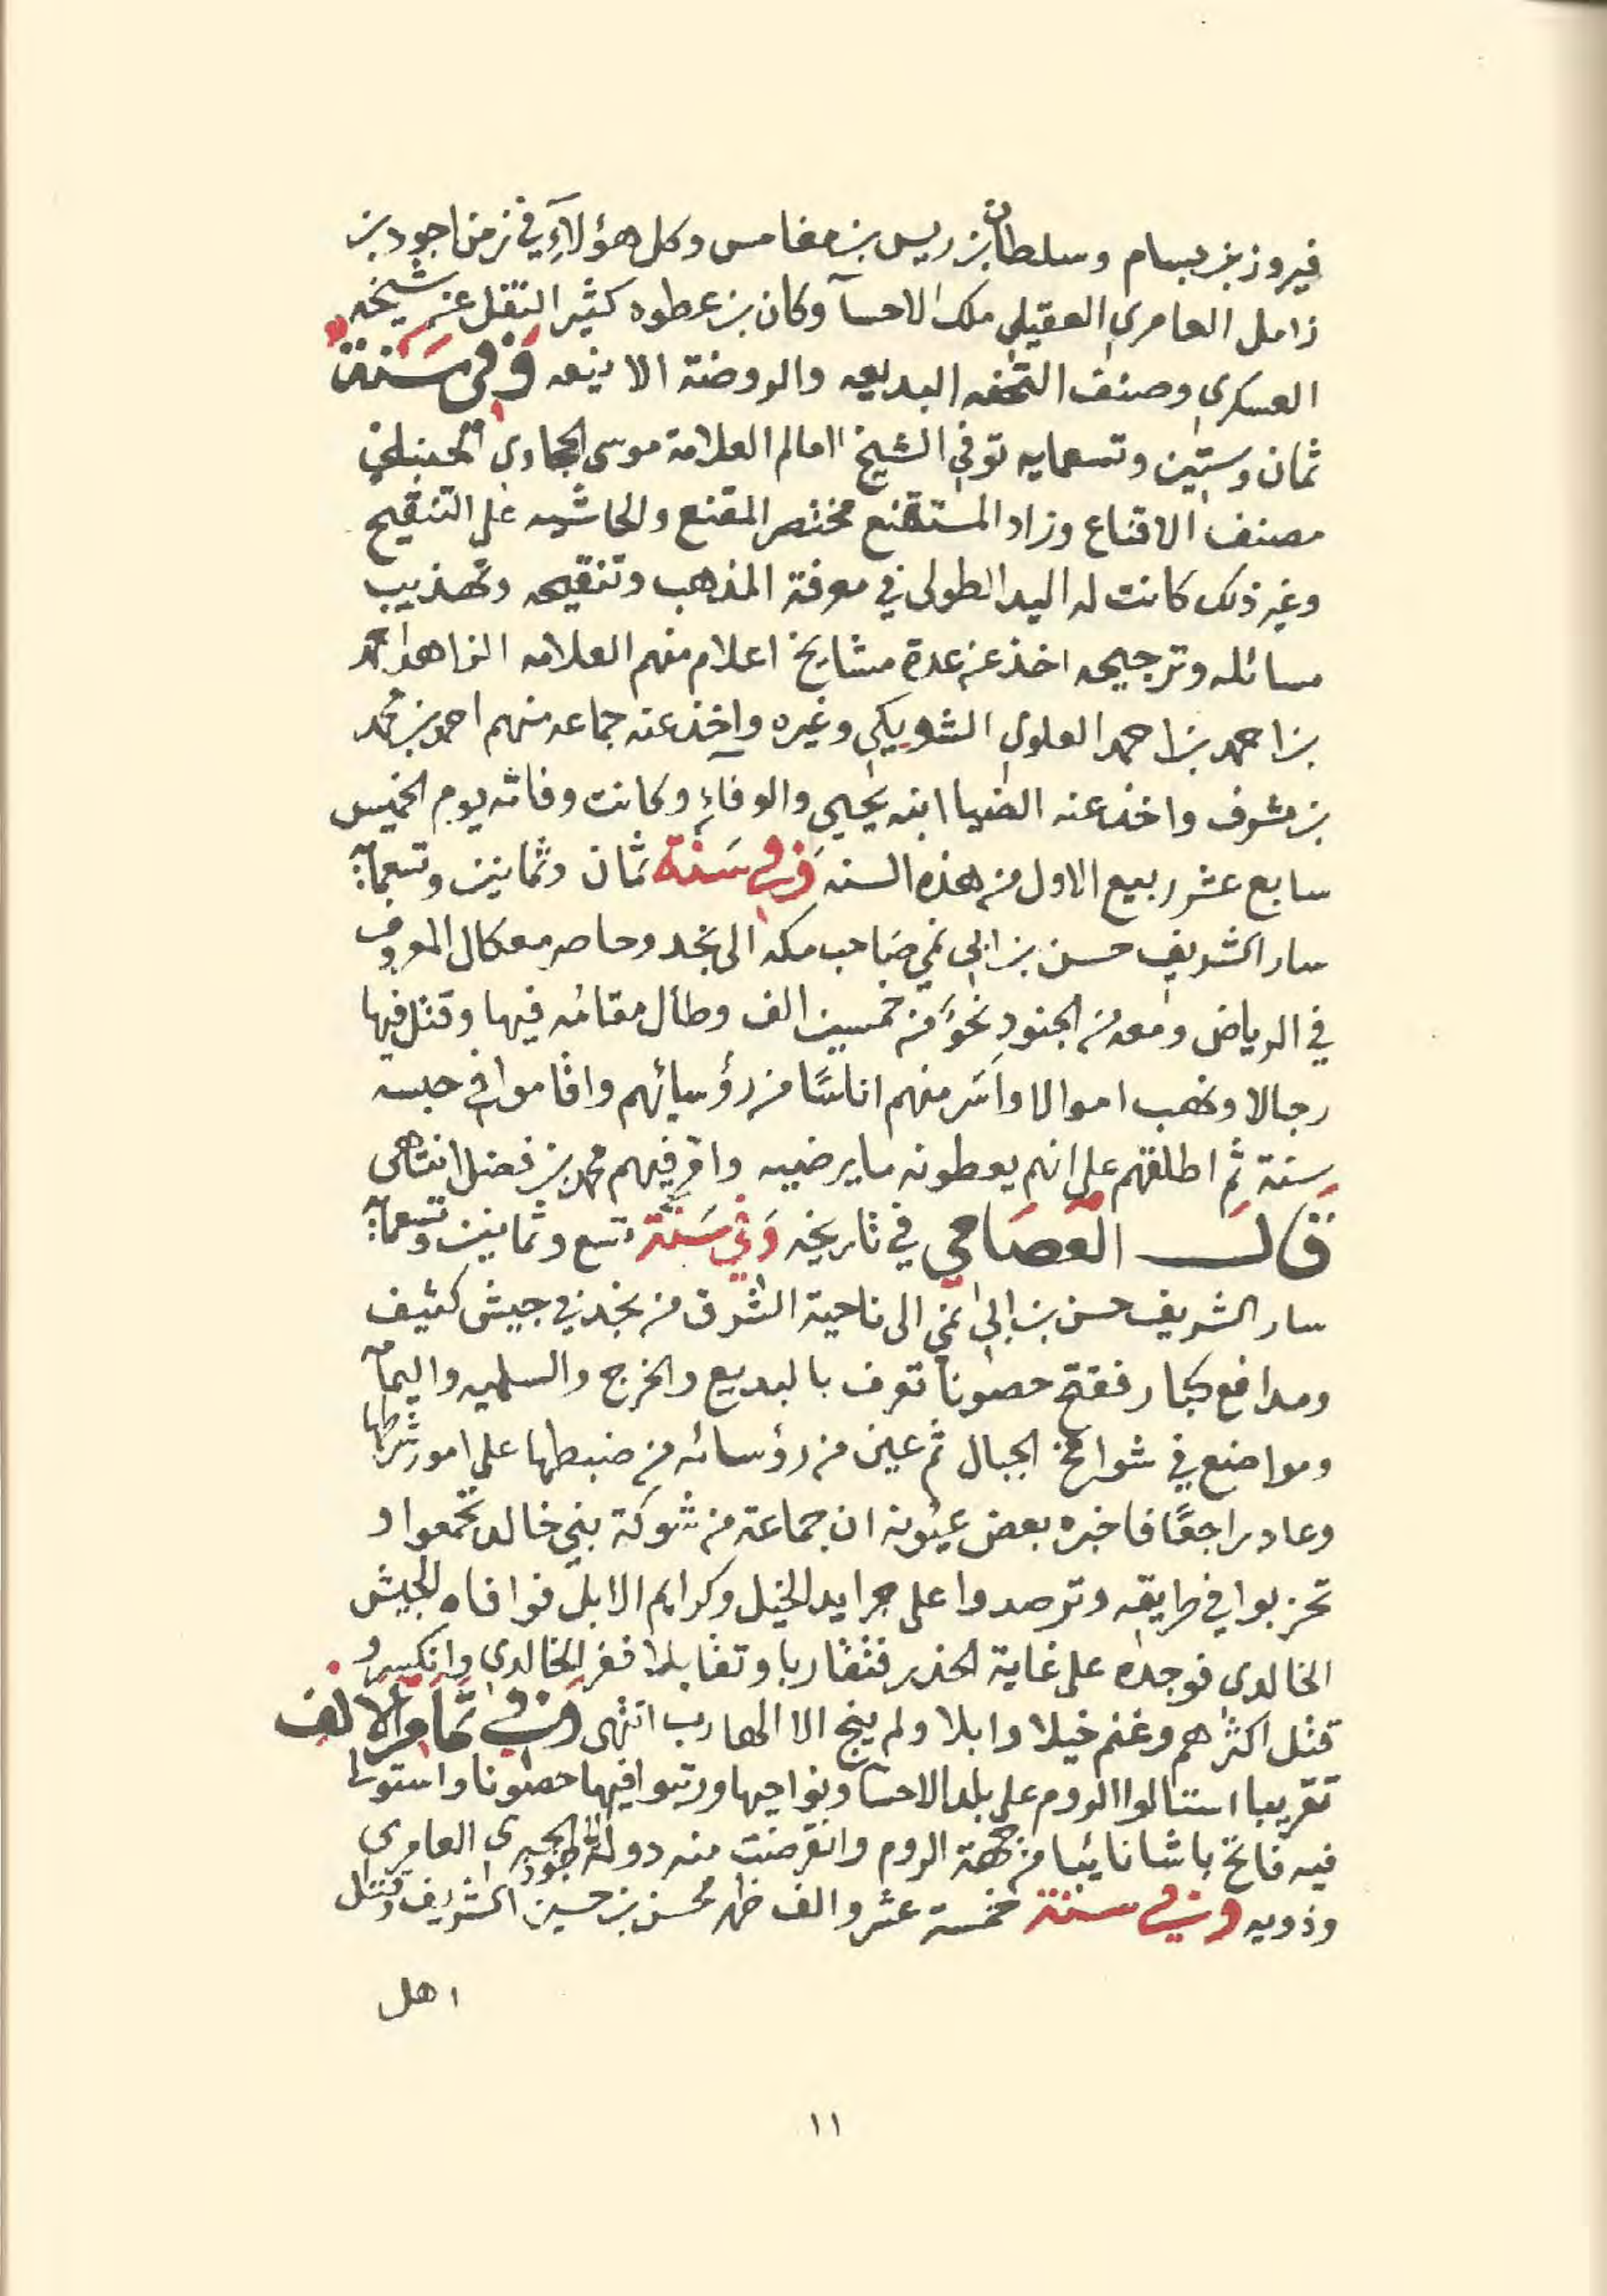 فيروز بن بسام وسلطان بن ريس بن مغامس وكل هؤلآء في زمن اجود بن
زامل العامري العقيلي ملك الاحسآ وكان بن عطوه كثير النقل عن شيخه
العسكري وصنف التحفه البديعه والروضة الانيقه وفي سنة
ثمان وستين وتسعمايه توفي الشيخ الامام العلامة موسى الحجاوي الحنبلي
مصنف الاقناع وزاد المستقنع مختصر المقنع والحاشيه على التنقيح
وغير ذلك كانت له اليد الطولى في معرفة المذهب وتنقيحه وتهذيب
مسائله وترجيحه اخذ عن عدة مشايخ اعلام منهم العلامه الزاهد احمد
بن احمد بن احمد العلوي الشويكي وغيره واخذ عنه جماعه منهم احمد بن محمد
بن مشرف واخذ عنه الضيا ابنه يحيى والوفآء وكانت وفاته يوم الخميس
سابع عشر ربيع الاول من هذه السنه وفي سنة ثمان وثمانين وتسعمآئة
سار الشريف حسن بن ابي نمي صاحب مكه الى نجد وحاصر معكال المعروف
في الرياض ومعه من الجنود نحوَ من خمسين الف وطال مقامه فيها وقتل فيها
رجالا ونهب اموالا واسَر منهم اناسًا من رؤسائهم واقاموا في حبسه
سنة ثم اطلقهم على انهم يعطونه ما يرضيه وامر فيهم محمد بن فضل انتهى
قال العصامي في تاريخه وَفي سَنة تسع وثمانين وتسعمآئة
سار الشريف حسن بن ابي نمي الى ناحية الشرق من نجد في جيش كثيف
ومدافع كبار ففتح حصونا تعرف بالبديع والخرج والسلميه واليمآمه
ومواضع في شوامخ الجبال ثم عين من رؤسائه من ضبطها على امور شرطها
وعاد راجعًا فاخبره بعض عيونه ان جماعة من شوكة بني خالد تجمعوا و
تحزبوا في طريقه وترصدوا على جرايد الخيل وكرايم الابل فوافاه الجيش
الخالدي فوجده على غاية الحذر فتقاربا وتقابلا ففر الخالدي وانكسر و
قتل اكثرهم وغنم خيلا وابلا ولم ينج الا الهارب انتهى وفي تمام الالف
تقريبا استالوا الروم على بلد الاحسآ ونواحيها ورتبوا فيها حصونا واستولى
فيه فاتح باشا نائبا من جهة الروم وانقرضت منه دولة اجود الجبري العامري
وذويه وفي سنة خمسة عشر والف ظهر محسن بن حسين الشريف وقتل
اهل
١١